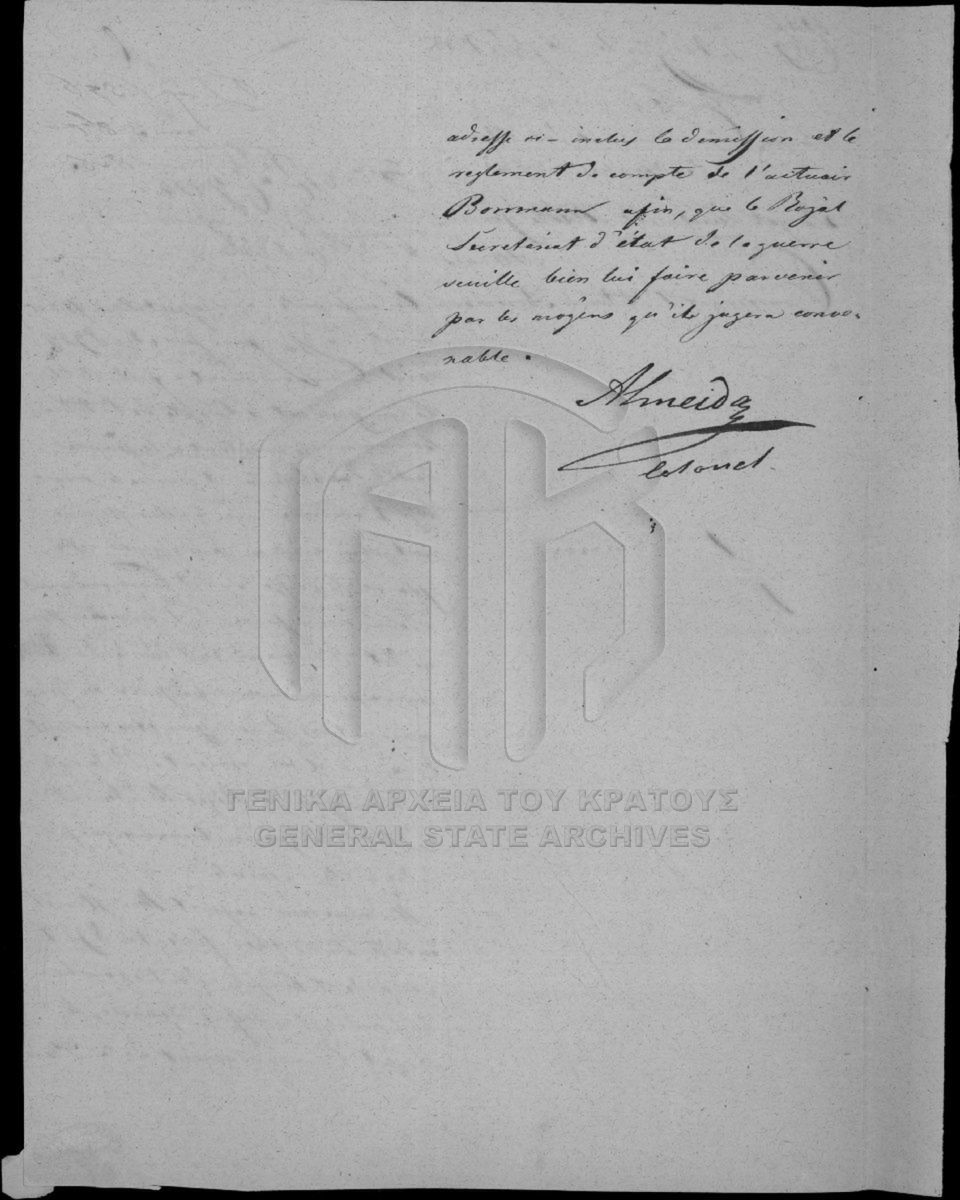 adresse ci-inclus le demission et le
reglement de compte de l'actuair
Bormann afin, que le Royal
Secretariat d'état de la guerre
veuille bien lui faire parvenir
par les moÿens qu'ils jugera conve-
nable.
Almeida
Colonel.
ΓΕΝΙΚΑ ΑΡΧΕΙΑ ΤΟΥ ΚΡΑΤΟΥΣ
GENERAL STATE ARCHIVES